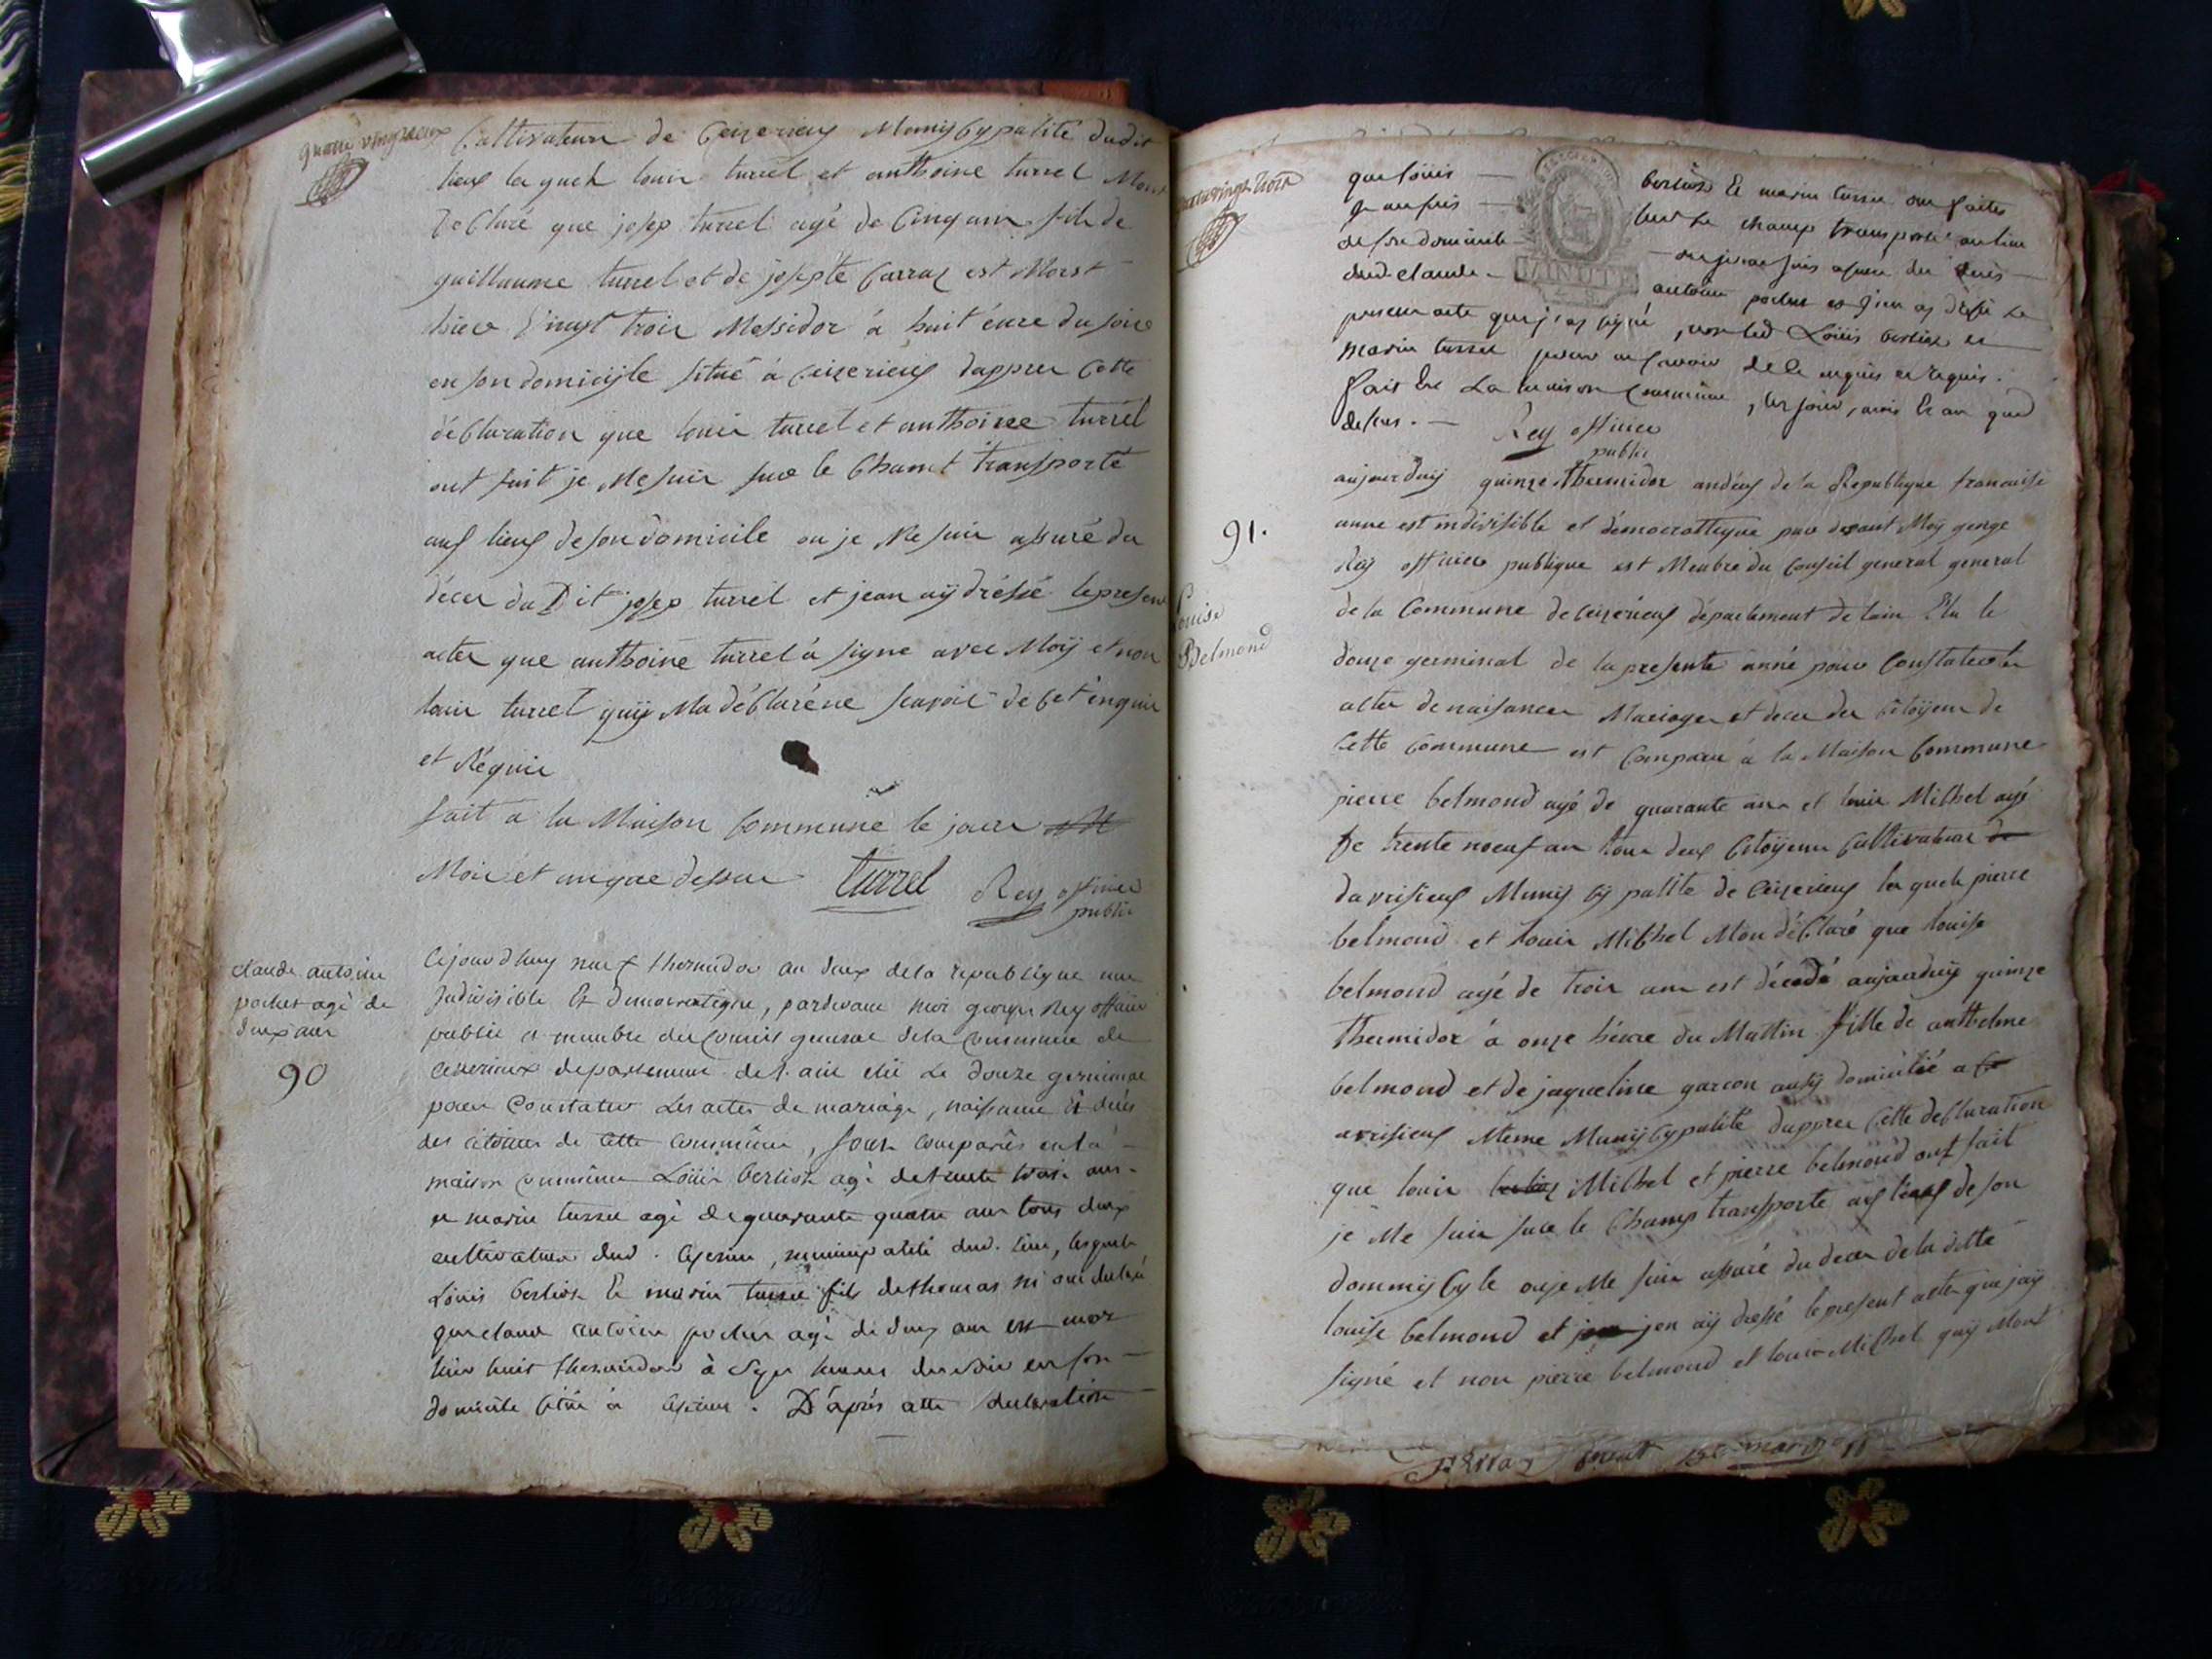 quatre vingt deux
Cultivateur de Ceizerieux Munycypalité dudit
lieux les quels louis turrel et anthoine turrel Mont
déclaré que josep turrel agé de Cinq ans fils de
guillaume turrel et de josepte Carraz est Mort
hier vingt trois Messidor à huit éure du soire
en son domicyle situé à Ceizerieux dapprer Cette
déClaration que louis turrel et anthoinee turrel
ont fait je Me suis sur le Chamt transporté
aux lieux de son domicile ou je Me suis assuré du
décer du Dit josep turrel et jean aÿ dréssé le present
acter que anthoine turrel à signe avec Moÿ et non
louis turrel quÿ Ma déClaré ne scavoir de Cet enquis
et Réquis
fait a la Maison Commune le jour
Mois et anque dessus turrel Rey officier
public
claude antoine
pochet agé de
deux ans
90
Cejourdhuy neuf thermidor an deux dela republique une
Indivisible Et Democratique, pardevant moi george Rey officier
public et membre du Conseil general dela Commune de
Ceserieux departement de l'ain élu Le douze germinal
pour Constater Les actes de mariage, naissance et décès
des citoiens de cette commune, sont comparûs en la
maison commune Loüis berlioz agé de trente trois ans
et marin turrel agé de quarante quatre ans tous deux
cultivateurs dud. Ceserieu, municipalité dud. lieu, lesquels
Loüis berlioz Et marin turrel fils de thomas m'ont declaré
que claude antoine pochet agé de deux ans est mort
hier huit thermidor à Sept heures du soir en son
domicile situé à Ceserieu. D'après cette declaration
quatre vingt trois
que loüis berlioz Et marin turrel ont faites
je me suis sur Le champ transporté au lieu
de son domicile ou je me suis assuré du decès
dud. claude antoine pochet et j'en ay dressé Le
present acte que j'ay signé, non led Loüis berlioz et
marin turrel pour ne savoir de Ce enquis et requis.
fait En La maison Commune, les jour, mois Et an que
dessus. Rey officier
public
91.
Louise
Belmond
aujourduy quinze thermidor an deux de la Republique francaise
unne est indivisible et démocrattique par devant Moy george
Rey officier publique est Membre du Conseil general general
de la Commune de Ceizérieux département de lain Elu le
douze germinal de la presente anné pour Constater les
acter de naisancer Mariager et decer der Citoÿens de
Cette Commune est Comparu à la Maison Commune
pierre belmond agé de quarante ans et louis Mithel agé
de trente noeuf an tous deux Citoÿens Cultivateurs de
davrisieux Municypallité de Ceizerieux les quels pierre
belmond et louis Mithel Mon déClaré que louise
belmond agé de trois ans est décédé aujourduÿ quinze
thermidor à onze héure du Mattin fille de anthelme
belmond et de jaqueline garcon ausÿ domicilié a
avrisieux Méme Munycypalité dapprer Cette deClaration
que louis berlioz Mithel et pierre belmond ont fait
je Me suis sur le Champ transporté aux lieux de son
dommicyle ou je Me suis assuré du decer de la ditte
louise belmond et jen aÿ dréssé le present acter que jaÿ
signé et non pierre belmond et louis Mithel quÿ Mont